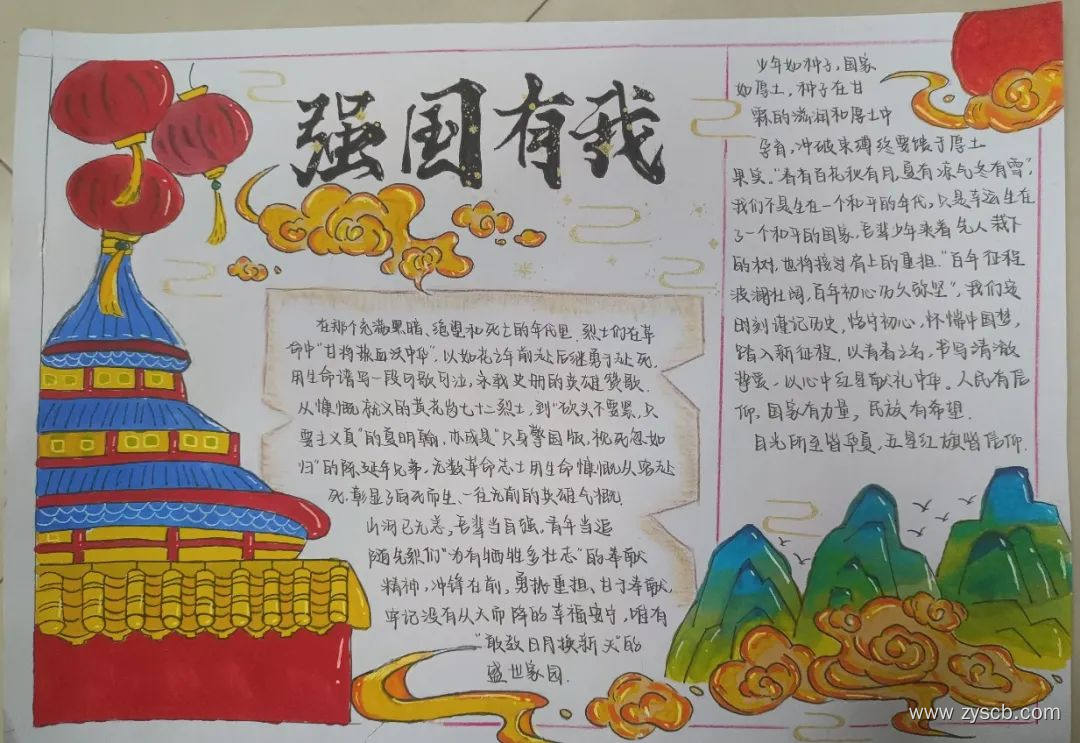 强国有我
在那个充满黑暗、绝望和死亡的年代里,烈士们在革
命中"甘将热血沃中华",以如花之年前赴后继勇于赴死,
用生命谱写一段可歌可泣,永载史册的英雄赞歌.
从慷慨就义的黄花岗七十二烈士,到"砍头不要紧,只
要主义真"的夏明翰,亦或是"只身擎国版,视死忽如
归"的陈延年兄弟,无数革命志士用生命慷慨从容赴
死,彰显了向死而生、一往无前的英雄气概.
山河已无恙,吾辈当自强,青年当追
随先烈们"为有牺牲多壮志"的奉献
精神,冲锋在前,勇挑重担,甘于奉献,
牢记没有从天而降的幸福安宁,唯有
"敢教日月换新天"的
盛世家园.
少年如种子,国家
如厚土,种子在甘
霖的滋润和厚土中
孕育,冲破束缚终要馈于厚土
果实."春有百花秋有月,夏有凉气冬有雪",
我们不是生在一个和平的年代,只是幸运生在
了一个和平的国家,吾辈少年乘着先人栽下
的树,也将接过肩上的重担."百年征程
波澜壮阔,百年初心历久弥坚",我们定
时刻谨记历史,恪守初心,怀揣中国梦,
踏入新征程.以青春之名,书写清澈
挚爱,以心中红星献礼中华.人民有信
仰,国家有力量,民族有希望.
目光所至皆华夏,五星红旗皆信仰.
www.zyscb.com